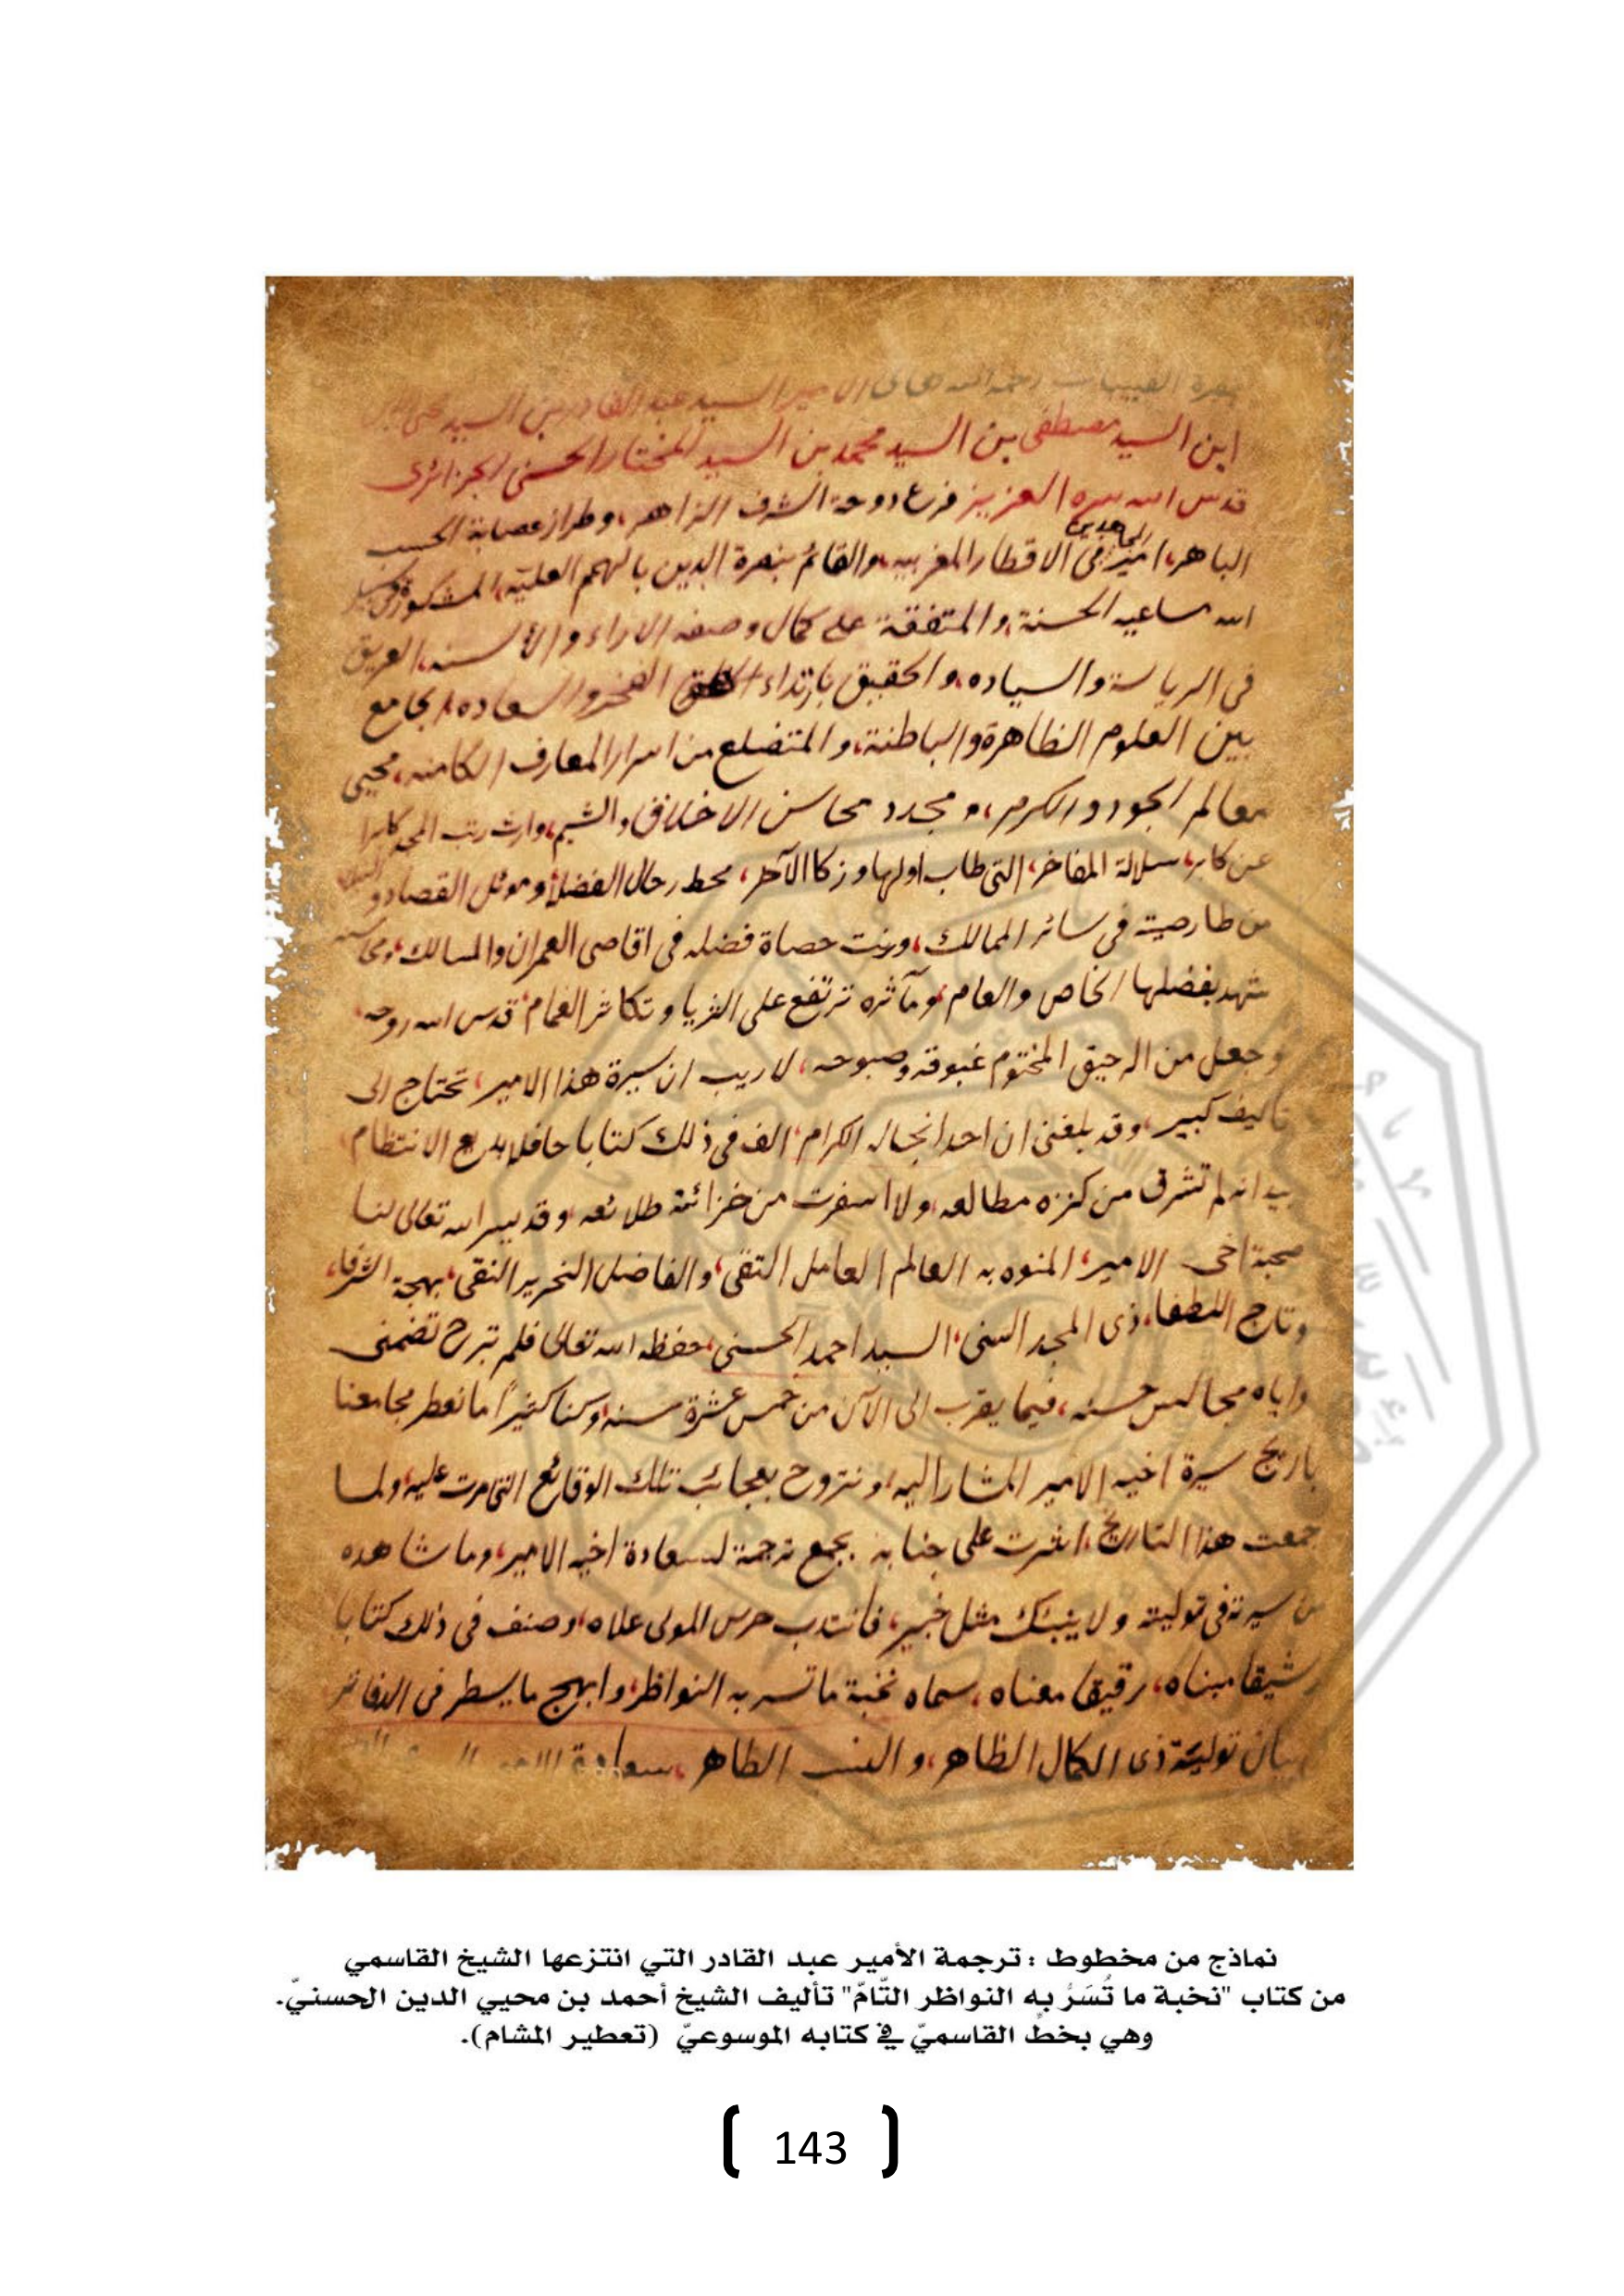 الامير السيد عبد القادر بن السيد محى الدين
ابن السيد مصطفى بن السيد محمد بن السيد المختار الحسنى الجزائرى
قدس الله سره العزيز فرع دوحة الشرف الزاهر، وطراز عصابة الحسب
الباهر، امير المجاهدين فى الاقطار المغربيه، والقائم بنصرة الدين بالهمم العليه، المشكورة
الله مساعيه الحسنة، والمتفقة على كمال وصفه الاراء والألسنه، العريق
فى الرياسة والسياده، والحقيق بارتداء الفخر والسعاده، الجامع
بين العلوم الظاهرة والباطنة، والمتضلع من اسرار المعارف الكامنه، محيى
معالم الجود والكرم، ومجدد محاسن الاخلاق والشيم، وارث رتب المجد كابرا
عن كابر، سلالة المفاخر، التى طاب اولها وزكا الآخر، محط رحال الفضلأ وموئل القصاد و
من طار صيته فى سائر الممالك، ورنت حصاة فضله فى اقاصى العمران والمسالك، ومحاسنه
شهد بفضلها الخاص والعام، ومآثره ترتفع على الثريا وتكاثر الغمام، قدس الله روحه،
وجعل من الرحيق المختوم غبوقه وصبوحه، لا ريب ان سيرة هذا الامير، تحتاج الى
تأليف كبير، وقد بلغنى ان احد انجاله الكرام، الف فى ذلك كتابا حافلا بديع الانتظام،
بيد انه لم تشرق من كنزه مطالعه، ولا اسفرت من خزائنه طلائعه، وقد يسر الله تعالى لنا
صحبة اخى الامير، المنوه به العالم العامل التقى، والفاضل النحرير النقى، بهجة الشرفاء،
وتاج اللطفاء، ذى المجد السنى، السيد احمد الحسنى، حفظه الله تعالى فلم تبرح تضمنى
واياه مجالس حسنه، فيما يقرب الى الآن من خمس عشرة سنه، وكنا كثيرًا ما نعطر مجامعنا
باريج سيرة اخيه الامير المشار اليه، ونتروح بعجائب تلك الوقائع التى مرت عليه، ولما
جمعت هذا التاريخ، اشرت على جنابه بجمع ترجمة لسعادة اخيه الامير، وما شاهده
من سيرته فى توليته ولا ينبئك مثل خبير، فانتدب حرس المولى علاه، وصنف فى ذلك كتابا
رشيقا مبناه، رقيقا معناه، سماه نخبة ما تسر به النواظر، وابهج ما يسطر فى الدفاتر
بيان تولية ذى الكمال الظاهر، والنسب الطاهر، سعادة الامير
نماذج من مخطوط : ترجمة الأمير عبد القادر التي انتزعها الشيخ القاسمي
من كتاب "نخبة ما تُسَرُّ به النواظر التّامّ" تأليف الشيخ أحمد بن محيي الدين الحسنيّ.
وهي بخطّ القاسميّ في كتابه الموسوعيّ (تعطير المشام).
143